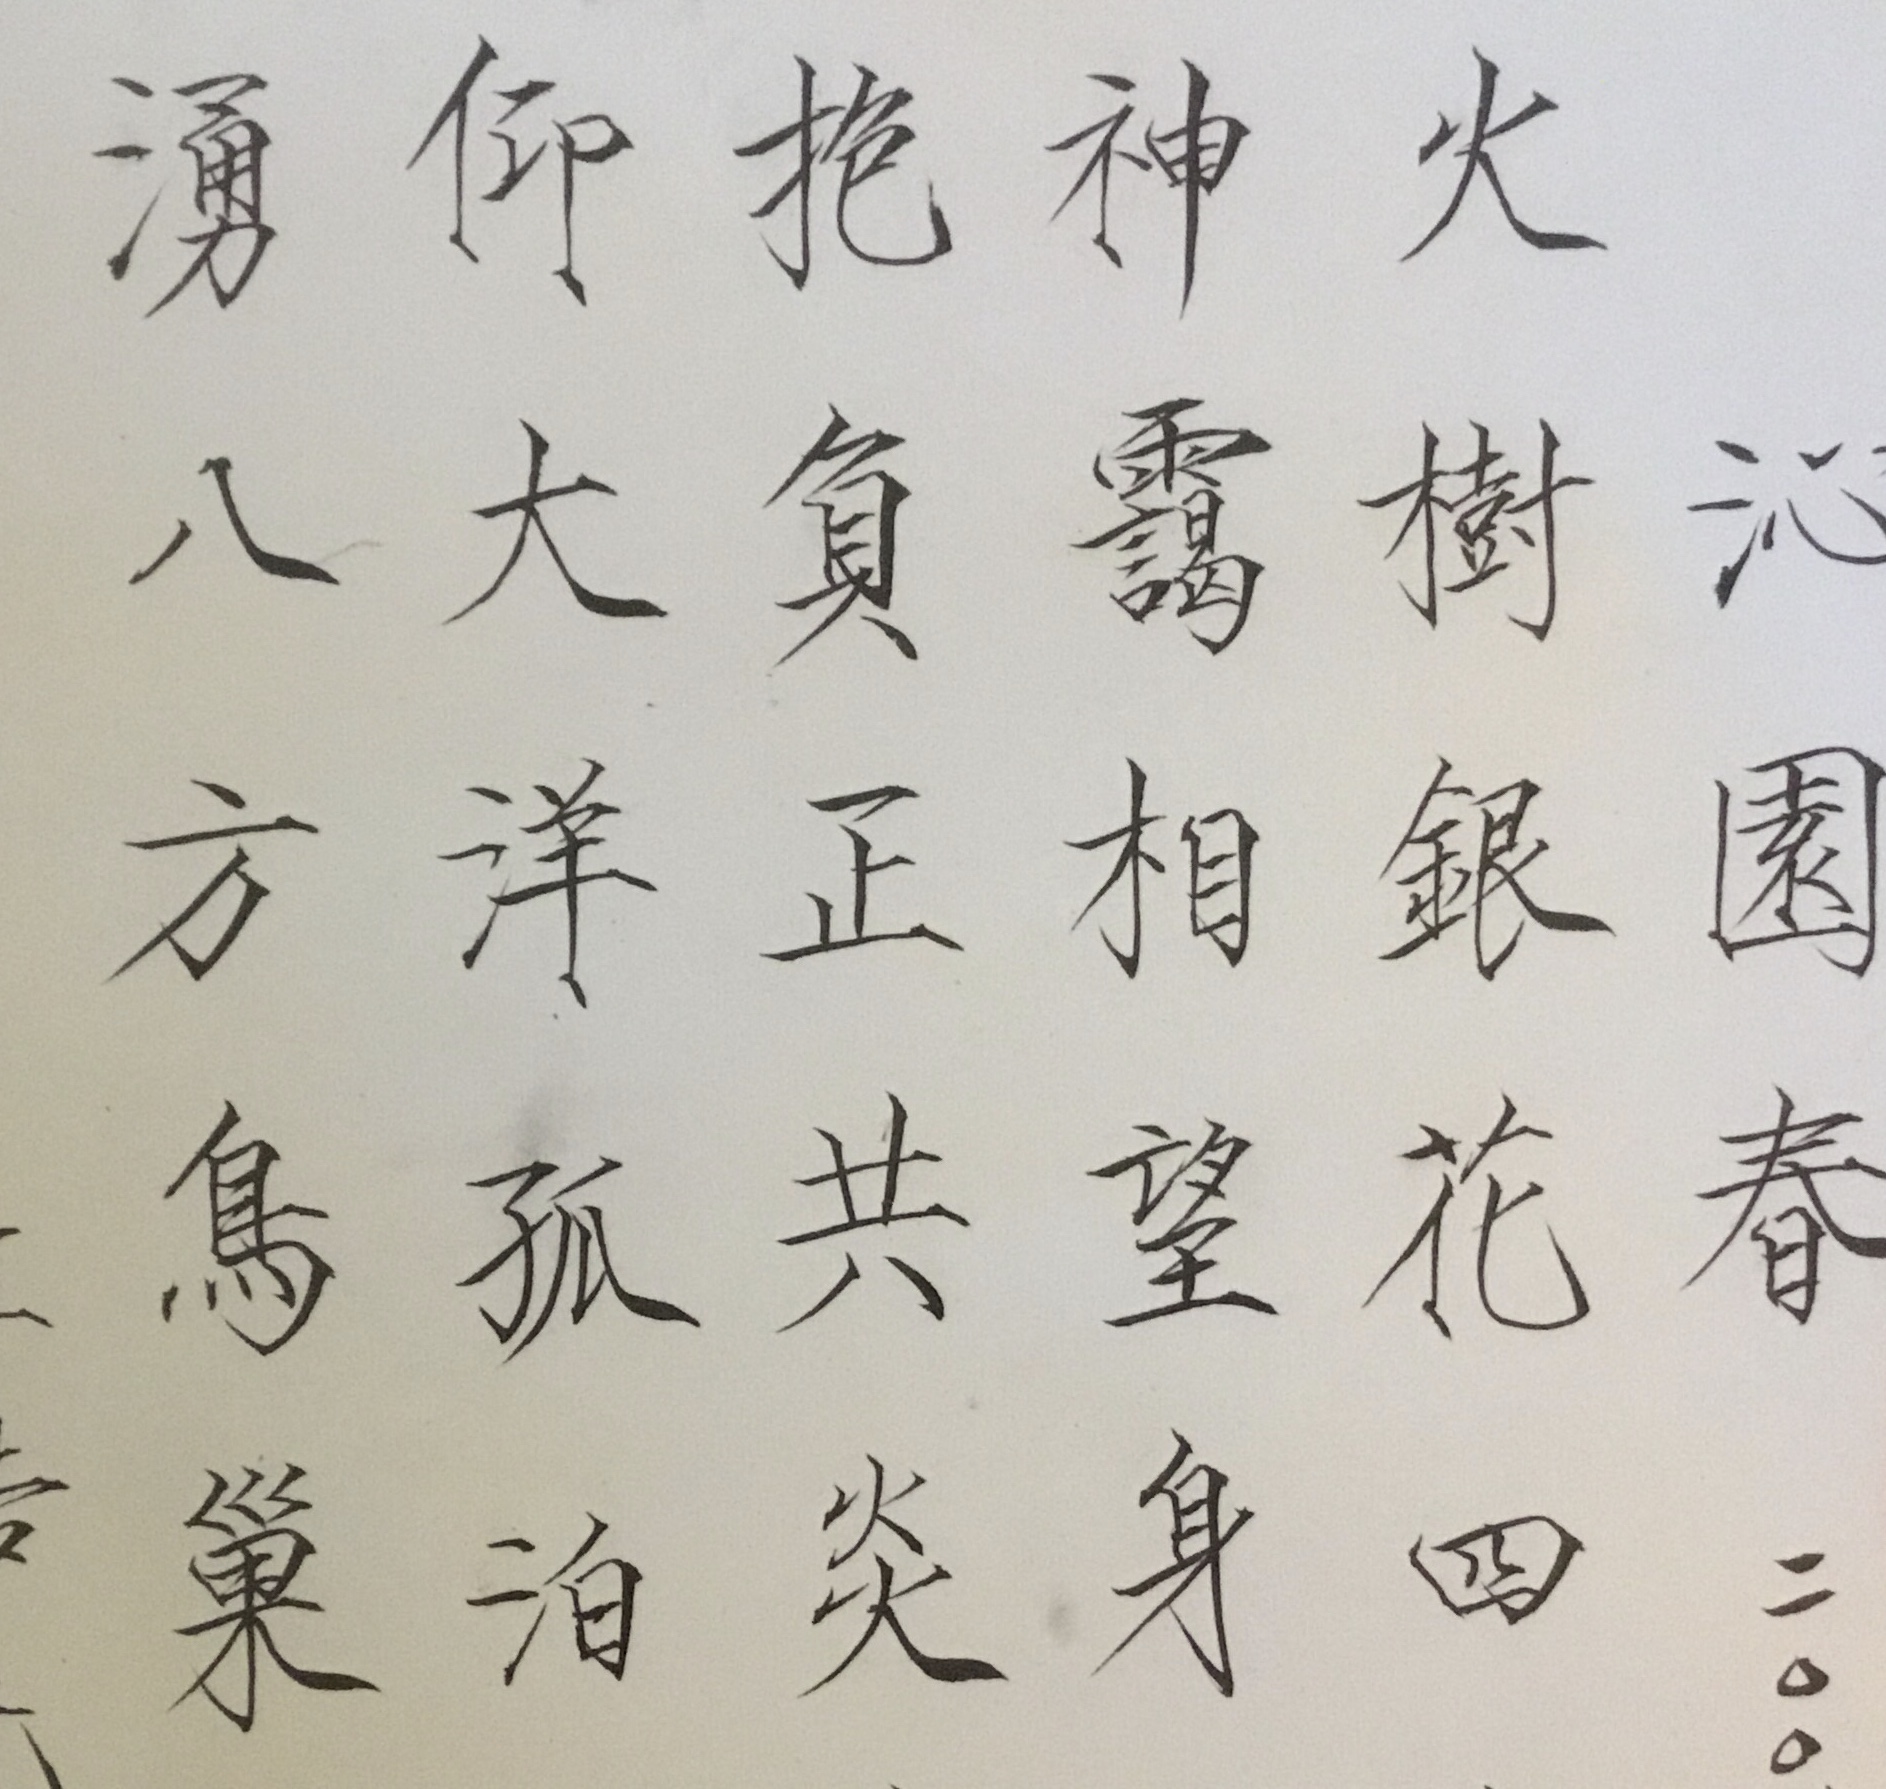 沁園春二〇〇
火樹銀花四
神靄相望身
抱負正共炎
仰大洋孤泊
湧八方鳥巢